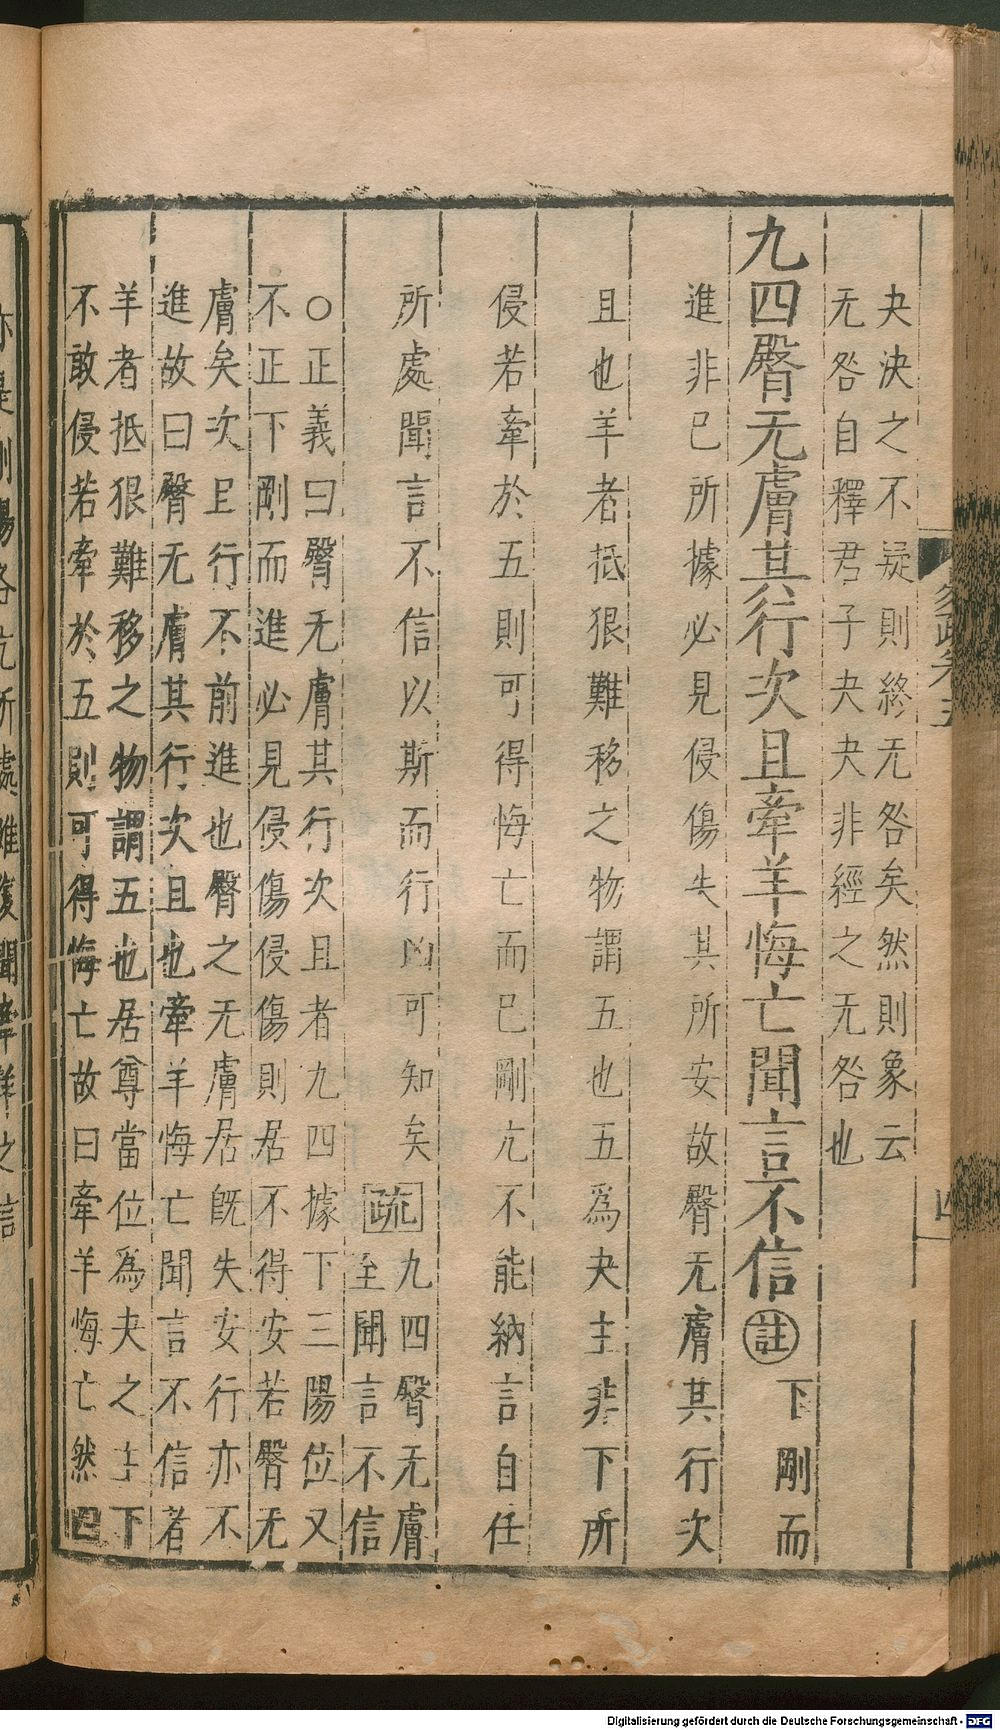 夬決之不疑則終无咎矣然則象云
无咎自釋君子夬夬非經之无咎也
九四臀无膚其行次且牽羊悔亡聞言不信註下剛而
進非已所據必見侵傷失其所安故臀无膚其行次
且也羊者抵狠難移之物謂五也五爲夬主非下所
侵若牽於五則可得悔亡而已剛亢不能納言自任
所處聞言不信以斯而行凶可知矣疏九四臀无膚
至聞言不信
○正義曰臀无膚其行次且者九四據下三陽位又
不正下剛而進必見侵傷侵傷則居不得安若臀无
膚矣次且行不前進也臀之无膚居旣失安行亦不
進故曰臀无膚其行次且也牽羊悔亡聞言不信者
羊者抵狠難移之物謂五也居尊當位爲夬之主下
不敢侵若牽於五則可得悔亡故曰牽羊悔亡然
Digitalisierung gefördert durch die Deutsche Forschungsgemeinschaft - DFG